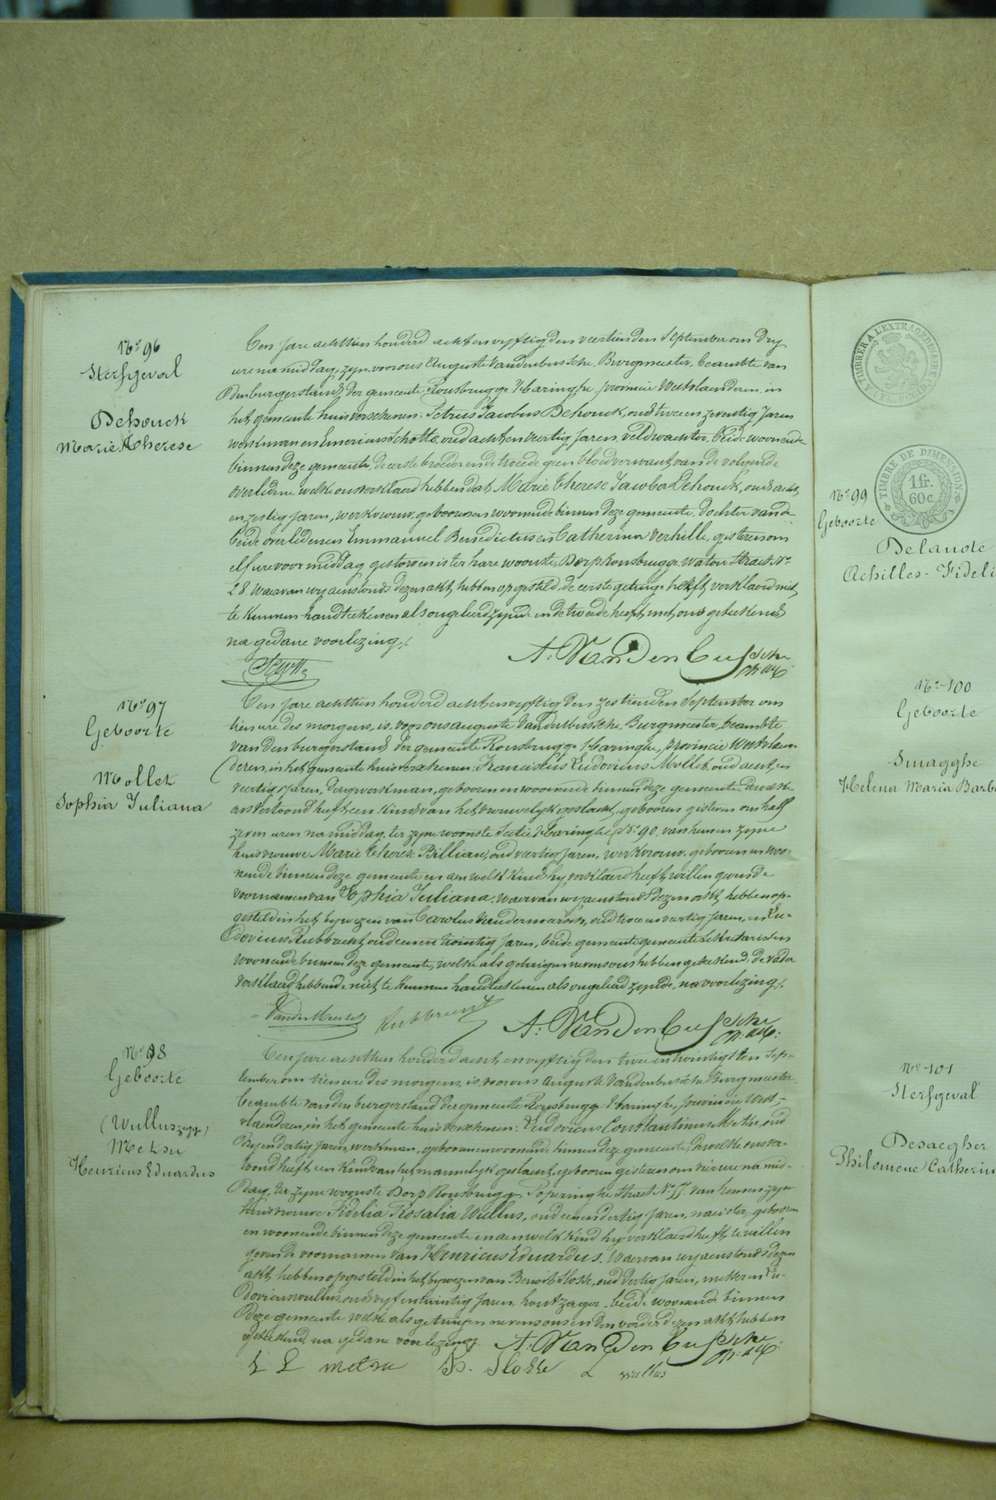 N° 96
Sterfgeval
Dehouck
Marie Therese
Den jare achttien honderd acht en vyftig den veertienden September om dry
ure na middag, zyn voor ons Auguste Vandenbussche, Burgmeester, beambte van
den burgerstand der gemeente Rousbrugge Haringhe, provincie Westvlanderen, in
het gemeente huis verschenen: Petrus Jacobus Dehouck, oud twee en zeventig jaren
werkman en Schotte, oud acht en veertig jaren, veldwachter, beide woonende
binnen deze gemeente, de eerste broeder en de tweede geen bloedverwant van de volgende
overledene welke ons verklaerd hebben dat Marie Therese Jacoba Dehouck, oud acht
en zestig jaren, werkvrouw, geboren en woonende binnen deze gemeente, dochter van de
beide overledenen Emmanuel Benedictus en Catherina Verhille, gisteren om
elf ure voor middag gestorven is ter hare woonste, Dorp Rousbrugge Waton straet N°
28 waervan wy aenstonds dezen akt hebben opgesteld, de eerste getuige heeft verklaerd niet
te kunnen handteekenen als ongeleerd zynde en de tweede heeft met ons geteekend
na gedane voorlezing.
A. VanDenBussche
N° 97
Geboorte
Mollet
Sophia Juliana
Den jare achttien honderd acht en vyftig den zestienden September om
tien ure des morgens, is voor ons auguste Vandenbussche, Burgmeester, beambte
van den burgerstand der gemeente Rousbrugge Haringhe, provincie Westvlaen
deren, in het gemeente huis verschenen: Franciscus Ludovicus Mollet, oud acht en
veertig jaren, dagwerkman, geboren en woonende binnen deze gemeente, dewelke
ons vertoond heeft een kind van het vrouwelyk geslacht, geboren gisteren om half
zeven uren na middag, ter zyne woonste Sectie Haringhe N° 90, van hem en zyne
huisvrouw Marie Therese Billiau, oud veertig jaren, werkvrouw, geboren en woo-
nende binnen deze gemeente en aen welk kind hy verklaerd heeft willen geven de
voornamen van Sophia Juliana, waervan wy aenstonds dezen akt hebben op-
gesteld in het bywezen van Carolus Vandermarliere, oud twee en veertig jaren, en Lu-
dovicus Rubbrecht, oud een en twintig jaren, beide gemeente sekretarissen
woonende binnen deze gemeente, welke als getuigen nevens ons hebben geteekend, de vader
verklaerd hebbende niet te kunnen handteekenen als ongeleerd zynde, na voorlezing.
Rubbrecht A. VanDenBussche
N° 98
Geboorte
(Wullus zegge)
Metsu
Henricus Eduardus
Den jare achttien honderd acht en vyftig den twee en twintigsten Sep-
tember om tien ure des morgens, is voor ons auguste Vandenbussche Burgmeester
beambte van den burgerstand der gemeente Rousbrugge Haringhe, provincie West-
vlanderen, in het gemeente huis verschenen: Ludovicus Constantinus Metsu, oud
dry en dertig jaren, werkman, geboren en woonende binnen deze gemeente, dewelke ons ver-
toond heeft een kind van het mannelyk geslacht, geboren gisteren om vier ure na mid-
dag, ter zyne woonste Dorp Rousbrugge, Poperinghe straet N° 55 van hem en zyne
huisvrouw Fidelia Rosalia Wullus, oud een en dertig jaren, naeister, geboren
en woonende binnen deze gemeente en aen welk kind hy verklaerd heeft te willen
geven de voornamen van Henricus Eduardus. Waervan wy aenstonds dezen
akt hebben opgesteld in het bywezen van Benoit Slosse, oud dertig jaren, en Lu-
dovicus Wullus, oud vyf en twintig jaren, houtzager, beide woonende binnen
deze gemeente welke als getuigen nevens ons en den vader dezen akt hebben
geteekend, na gedane voorlezing. A. VanDenBussche
L L metsu B. Slosse L wullus
A TIMBRER A L'EXTRAORDINAIRE
TIMBRE DE DIMENSION
1 fr.
60 c.
N° 99
Geboorte
Delanote
Achilles-Fideli
N° 100
Geboorte
Smagghe
Helena Maria Barb
N° 101
Sterfgeval
Desaegher
Philomene Catherin